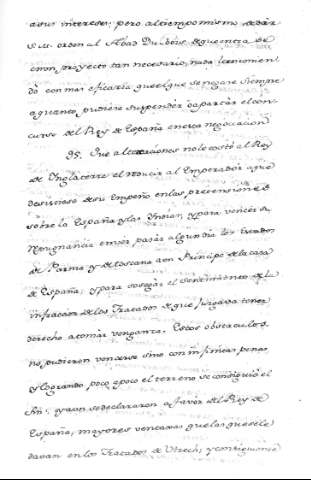 a sus intereses; pero al tiempo mismo de dar
S.M. orden al Abad Du Bois de que entra se
en un proyecto tan necesario, nada le recomen
dó con mas eficacia que el que se negare siempre
a quanto pudiere suspender o apartar el con
curso del Rey de España en esta negociacion.
95. Que alteraciones no le costó al Rey
de Inglaterra el reducir al Emperador a que
desistiese de su empeño en las pretensiones
sobre la España y las Indias, y para vencer su
repugnancia en ver pasar algun dia los Estados
de Parma y de Toscana a un Principe de la casa
de España, y para sosegar el sentimiento de la
infraccion de los Tratados de que juzgava tener
derecho a tomar venganza. Estos obstaculos
no pudieron vencerse sino con infinitas penas
y logrando poco a poco el terreno se consiguió el
fin: y aun se declararon a favor del Rey de
España, mayores ventajas que las que se le
davan en los Tratados de Utrech, y consiguiente